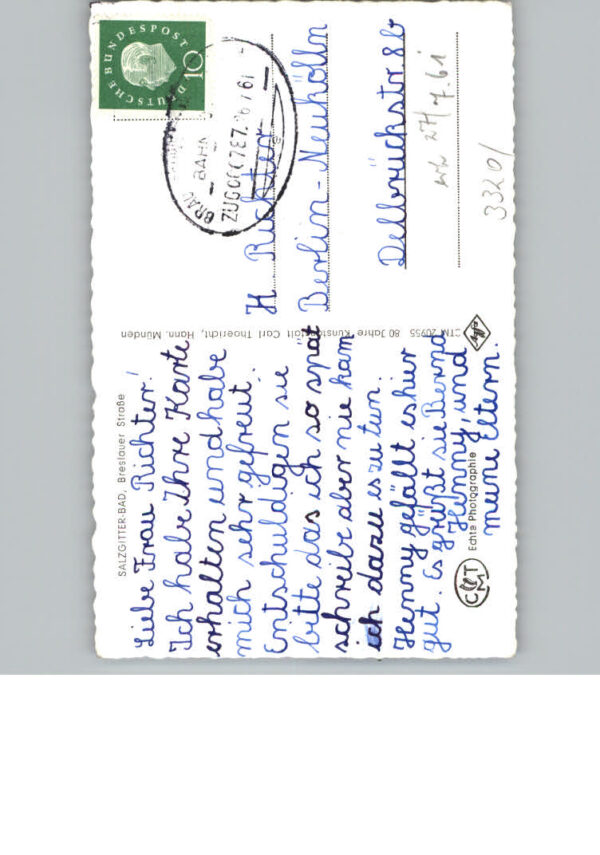 SALZGITTER-BAD, Breslauer Straße
Liebe Frau Richter!
Ich habe Ihre Karte
erhalten und habe
mich sehr gefreut.
Entschuldigen sie
bitte das ich so spät
schreibe aber nie kam
ich dazu es zu tun.
Henny gefällt es hier
gut. Es grüßt sie Bernd
Henny, und
meine Eltern.
CMT
Echte Photographie
CTM 20955 80 Jahre Kunstanstalt Carl Thoericht, Hann. Münden
Agfa
DEUTSCHE BUNDESPOST
10
BAHN
ZUG
H Richter
Berlin-Neukölln
Delbrückstr. 8b
27/7.61
3320/